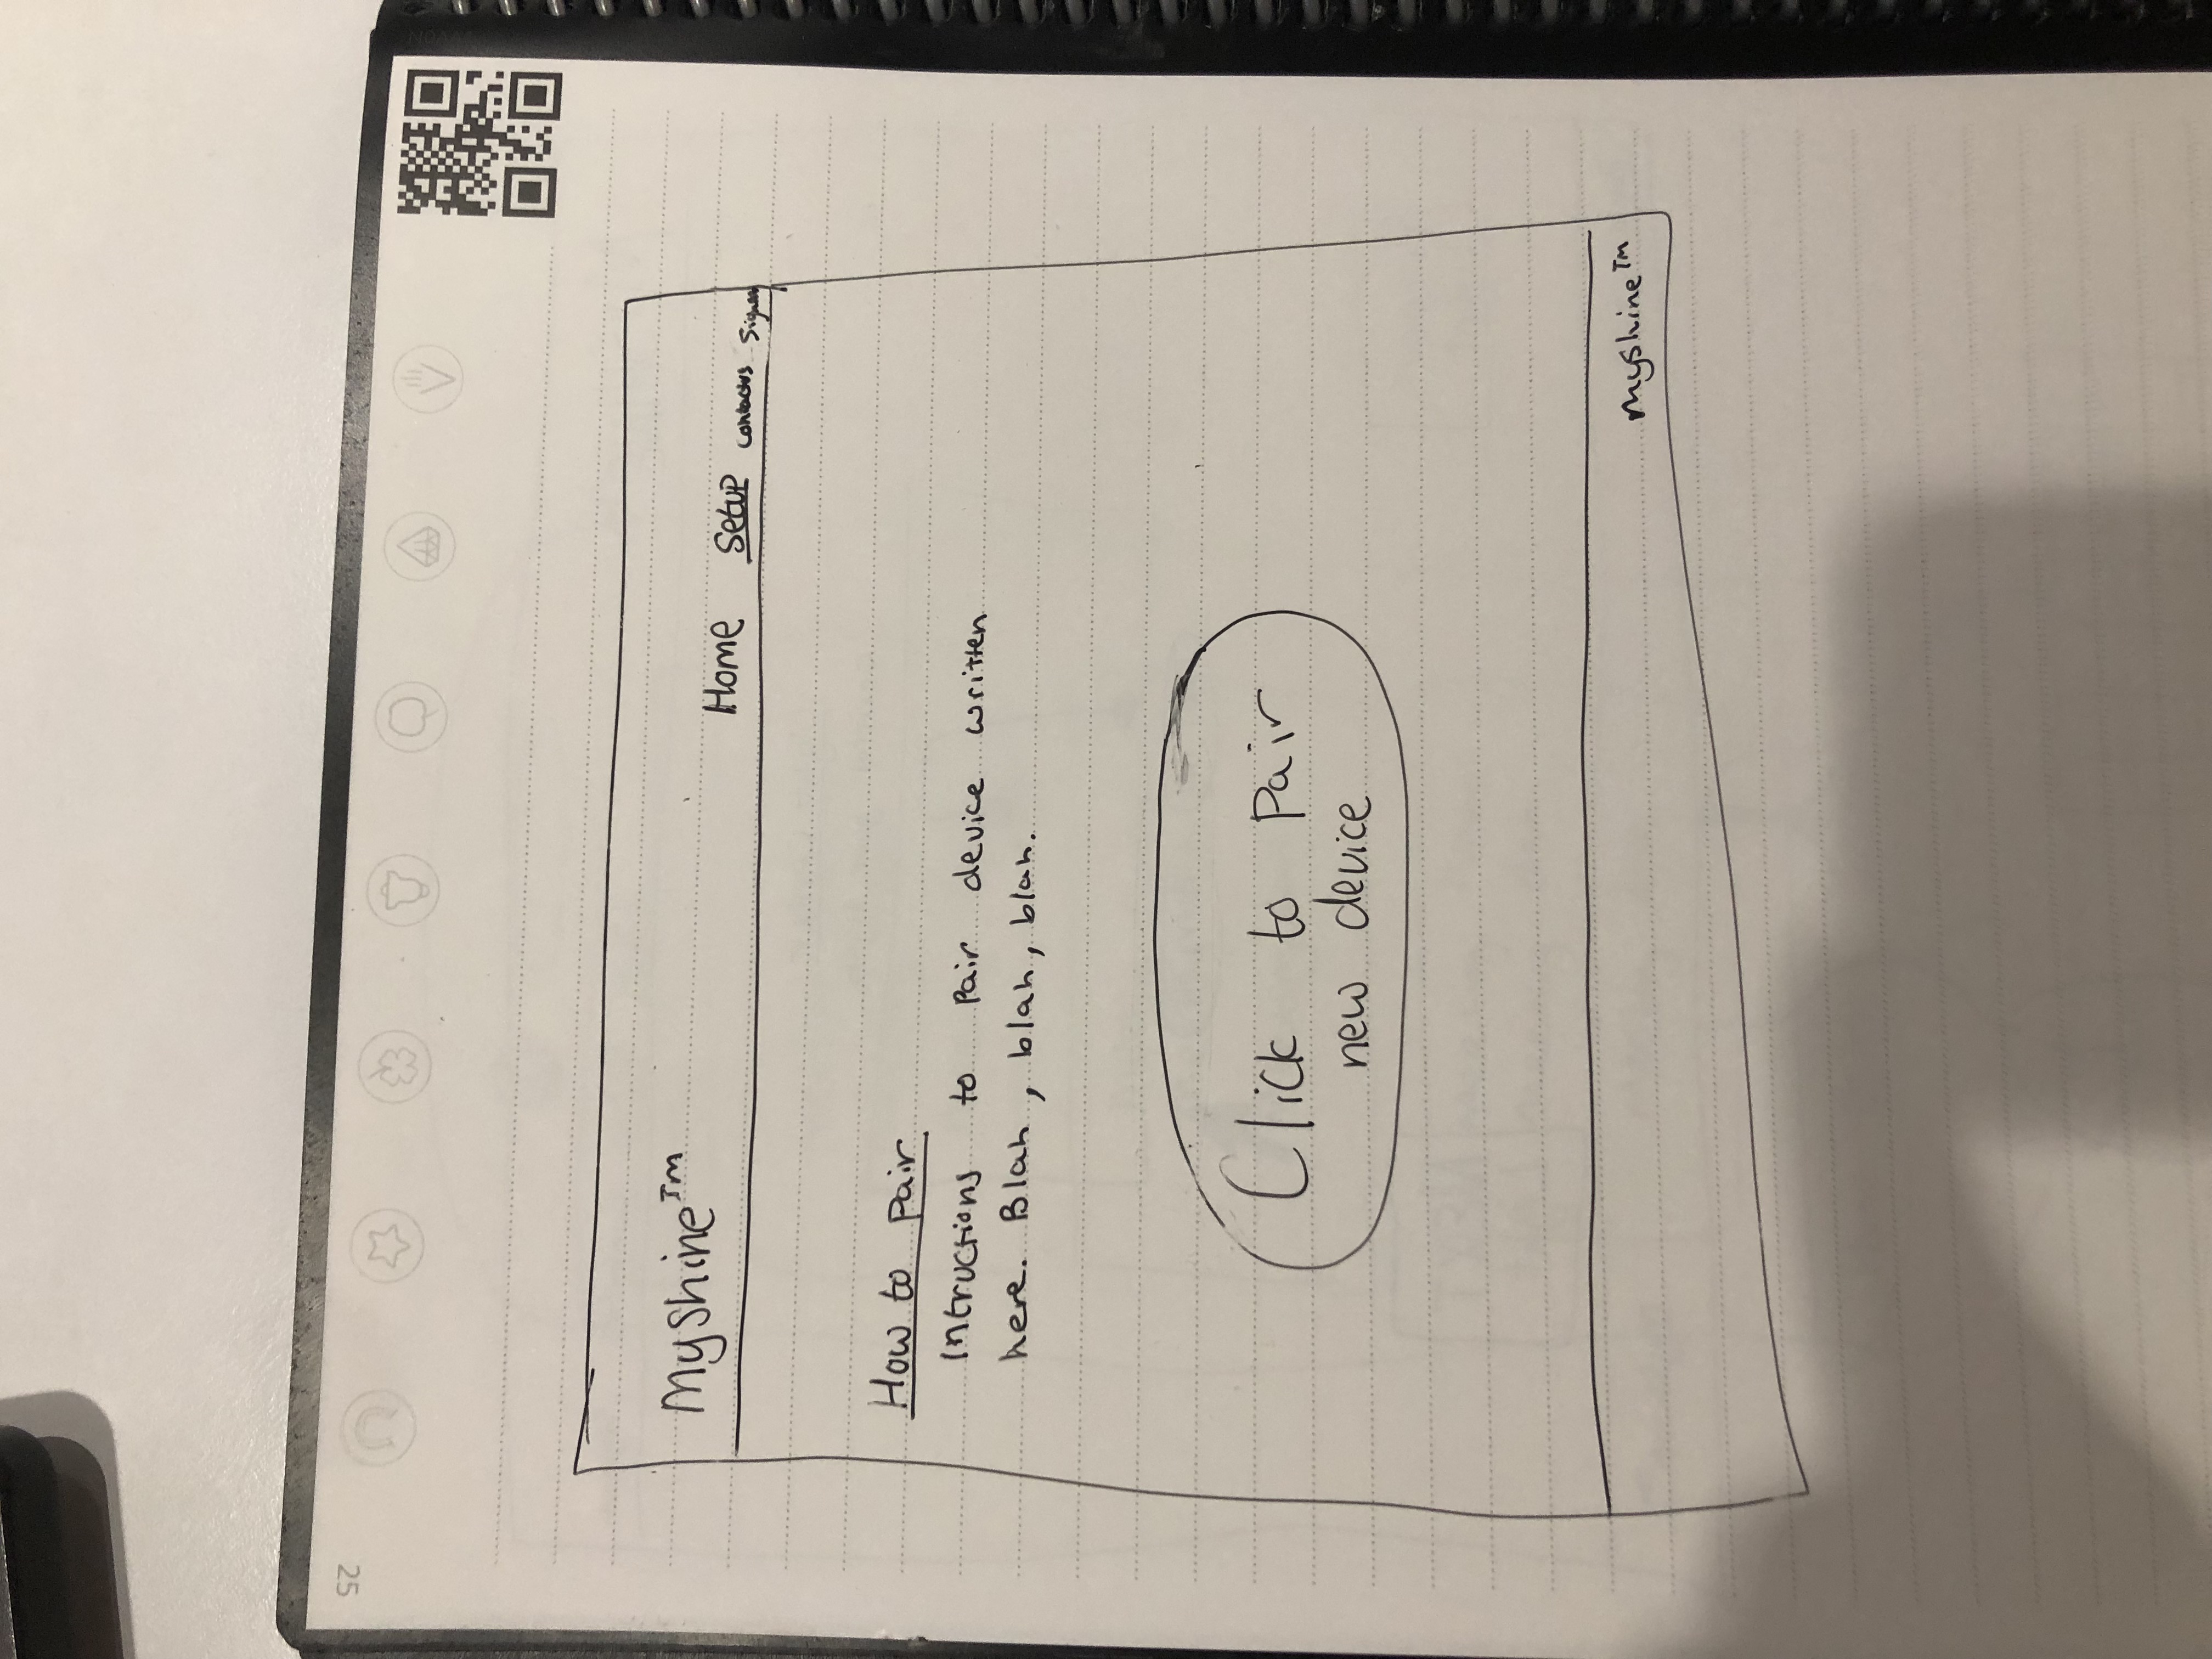 25
MyShine™
Home Setup Contactus
How to pair
Intructions to Pair device written
here. Blah, blah, blah.
Click to Pair
new device
myshine™